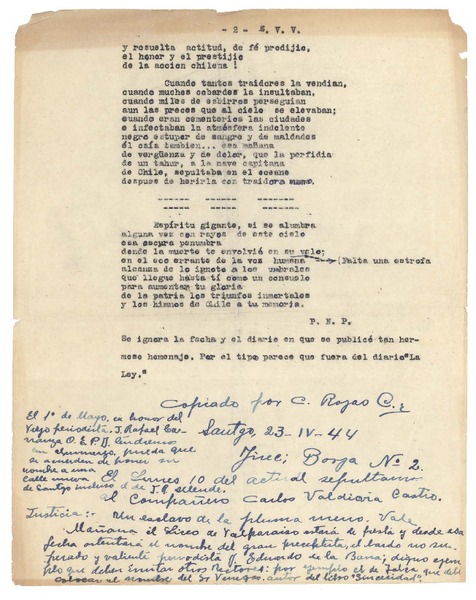 - 2 - E. V. V.
y resuelta actitud, de fé prodijio,
el honor y el prestijio
de la accion chilena !
Cuando tantos traidores la vendian,
cuando muchos cobardes la insultaban,
cuando miles de esbirros perseguian
aun las preces que al cielo se elevaban;
cuando eran cementerios las ciudades
e infectaban la atmósfera indolente
negro estupor de sangre y de maldades
él caía tambien... esa mañana
de vergüenza y de dolor, que la perfidia
de un tahur, a la nave capitana
de Chile, sepultaba en el oceano
despues de herirla con traidora mano.
------ ------ ------
------ ------ ------
Espíritu gigante, si se alumbra
alguna vez con rayos de este cielo
esa oscura penumbra
donde la muerte te envolvió en su velo;
en el eco errante de la voz humana (Falta una estrofa
alcanza de lo ignoto a los umbrales
que llegue hasta tí como un consuelo
para aumentar tu gloria
de la patria los triunfos inmortales
y los himnos de Chile a tu memoria.
P. N. P.
Se ignora la fecha y el diario en que se publicó tan her-
moso homenaje. Por el tipo parece que fuera del diario "La
Ley."
Copiado por C. Rojas C.
Santgo 23-IV-44
Jucc; Borja Nº 2.
El 1º de Mayo, en honor del
Viejo periodista J. Rafael Ca-
rranza Q.E.P.D. tendremos
un almuerzo, pueda que
se acuerden de honrar su
nombre a una
calle nueva
de Santgo incluso a de J. R. Allende.
El Lunes 10 del actual sepultamos
al Compañero Carlos Valdivia Castro.
Justicia:- Un esclavo de la pluma menos. Vale
Mañana el Liceo de Valparaíso estará de fiesta y desde esa
fecha ostentará el nombre del gran preceptista, el bardo no su-
perado y valiente periodista Dn. Eduardo de la Barra; digno ejem-
plo que deben imitar otros Rectores: por ejemplo el de Talca que debe
colocar el nombre del Sr Venegas autor del libro "Sinceridad".